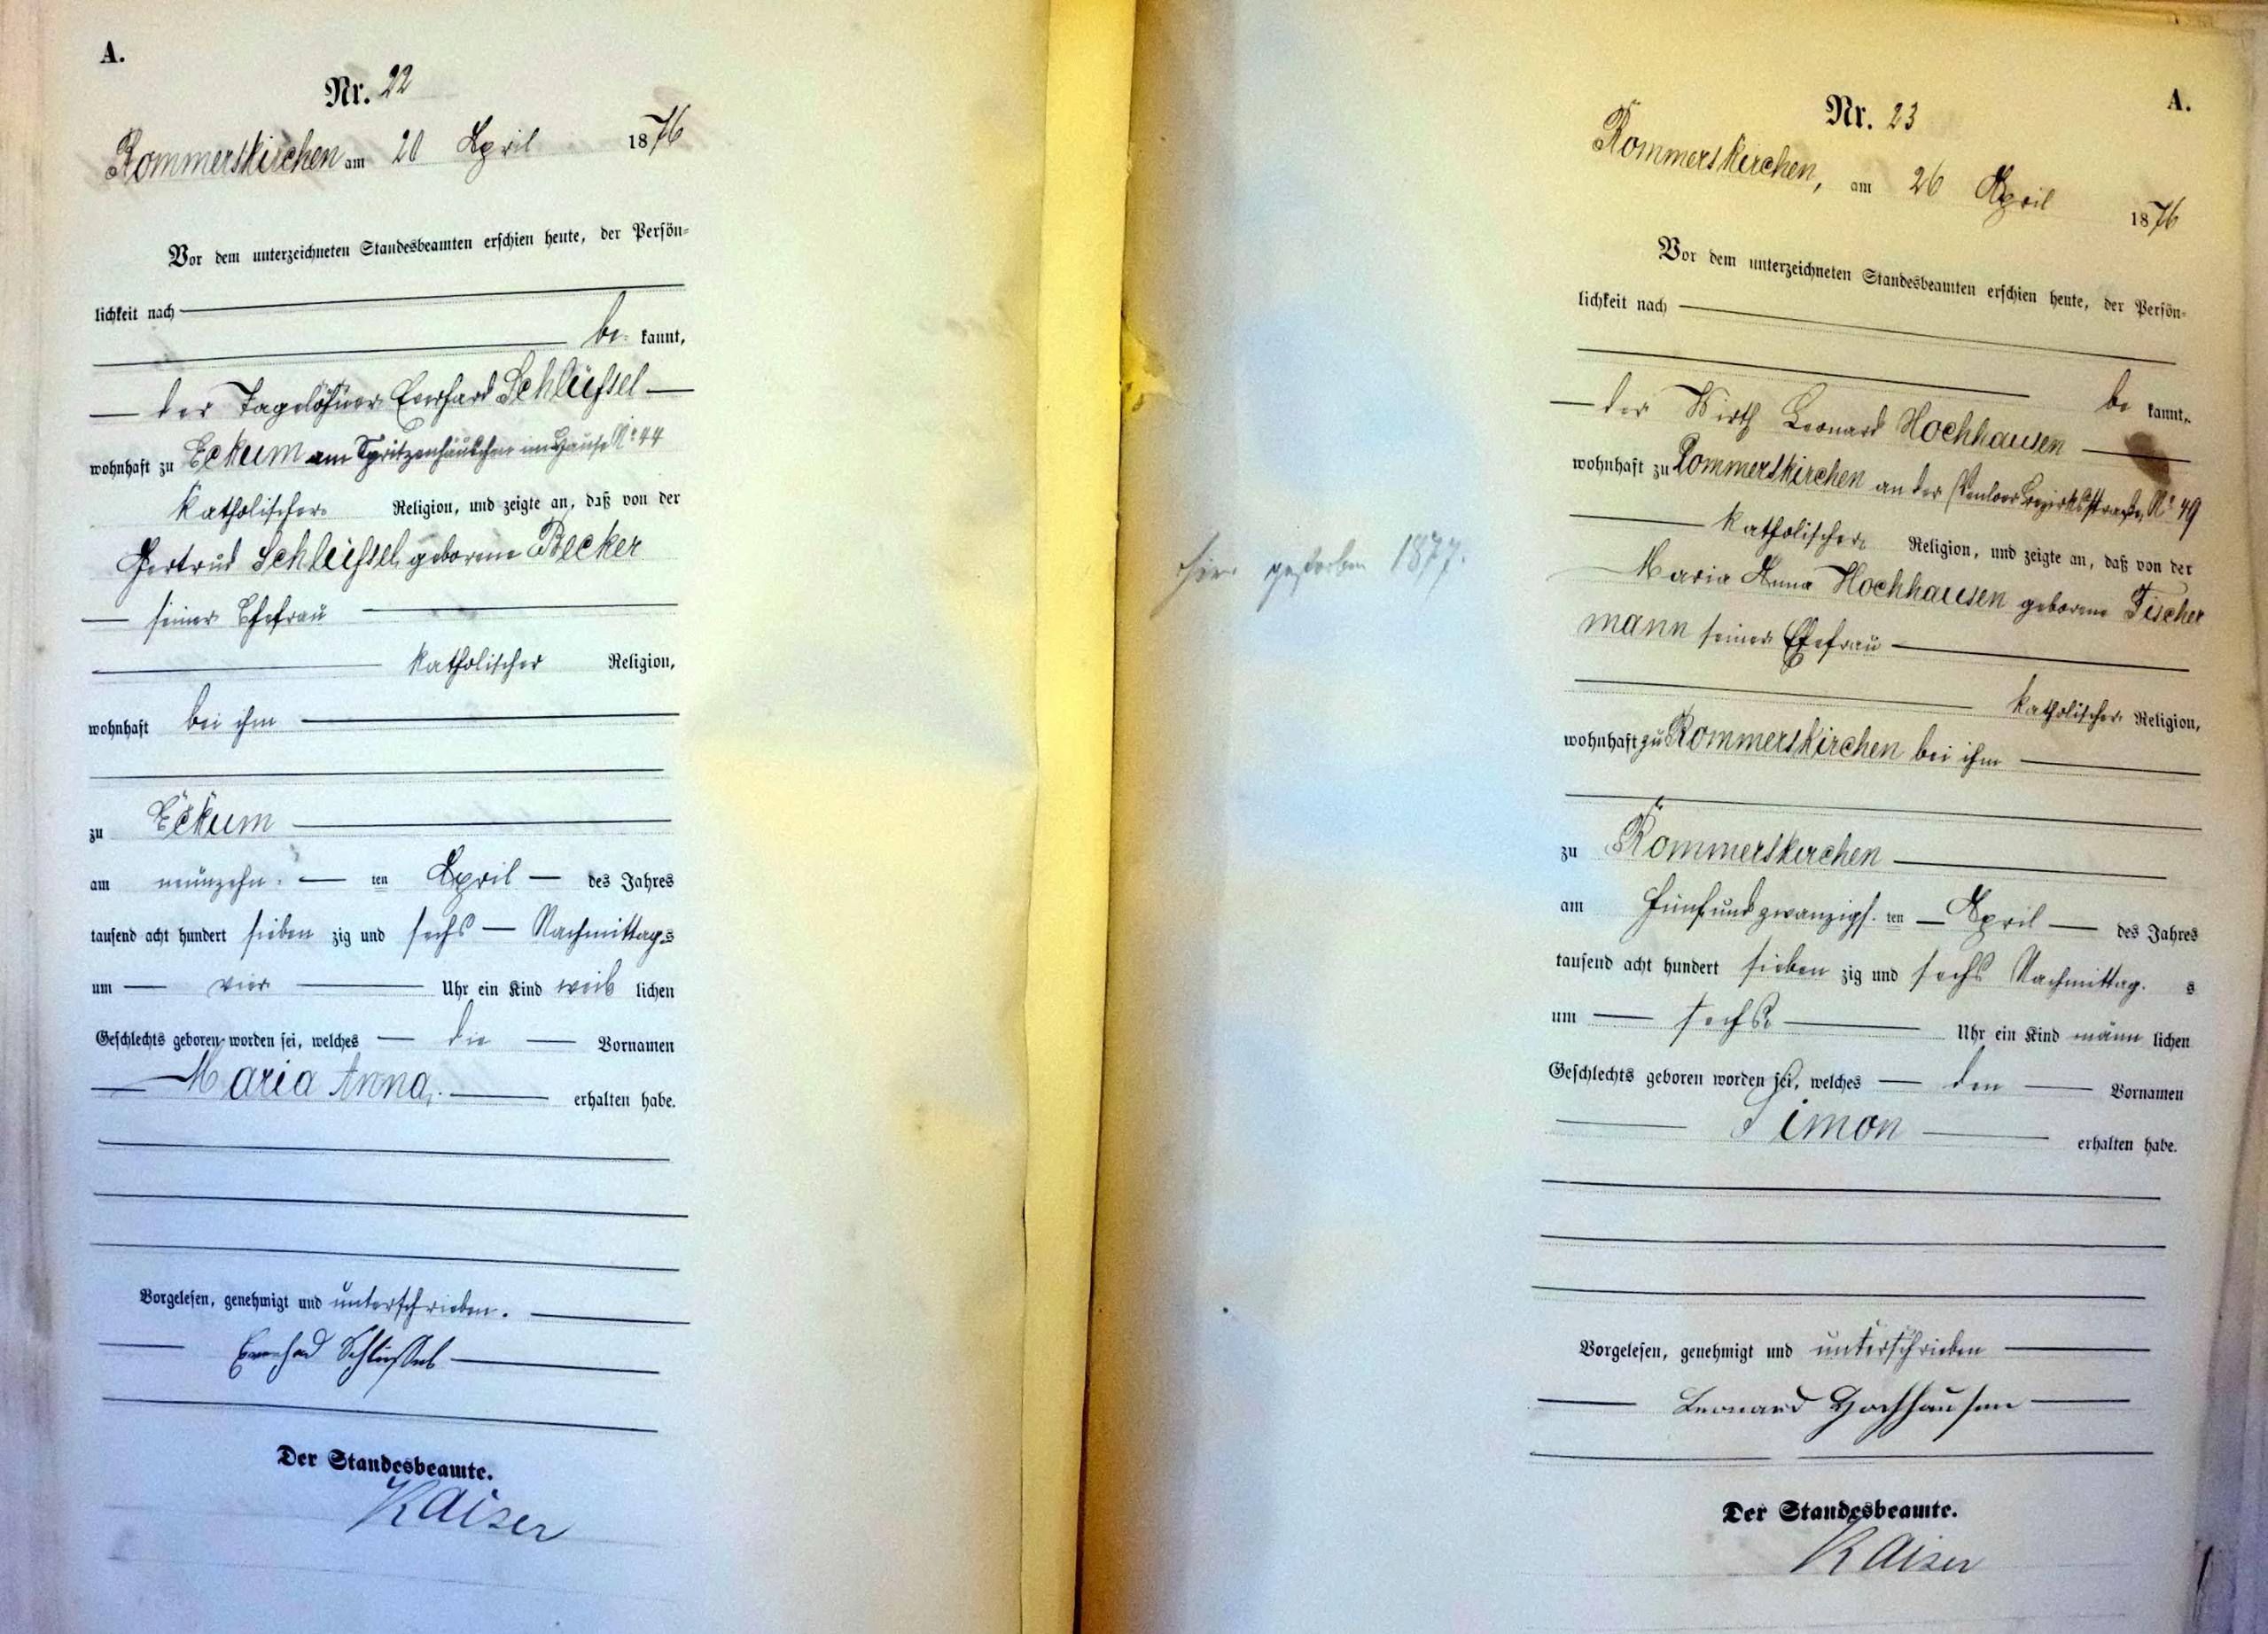 A.
Nr. 22
Rommerskirchen am 20 April 1876
Vor dem unterzeichneten Standesbeamten erschien heute, der Persön=
lichkeit nach
be kannt,
der Tagelöhner Everhard Schlüssel
wohnhaft zu Eckum am Spritzenhäuschen im Hause No 44
katholischer Religion, und zeigte an, daß von der
Gertrud Schlüssel, geborene Becker
seiner Ehefrau
katholischer Religion,
wohnhaft bei ihm
zu Eckum
am neunzehn ten April des Jahres
tausend acht hundert sieben zig und sechs Nachmittags
um vier Uhr ein Kind weib lichen
Geschlechts geboren worden sei, welches die Vornamen
Maria Anna erhalten habe.
Vorgelesen, genehmigt und unterschrieben.
Everhad Schlüssel
Der Standesbeamte.
Kaiser
hier gestorben 1877.
A.
Nr. 23
Rommerskirchen, am 26 April 1876
Vor dem unterzeichneten Standesbeamten erschien heute, der Persön=
lichkeit nach
be kannt,
der Wirth Leonard Hochhausen
wohnhaft zu Rommerskirchen an der Venloer Bezirksstraße, No 49
katholischer Religion, und zeigte an, daß von der
Maria Anna Hochhausen geborene Fischer
mann seiner Ehefrau
katholischer Religion,
wohnhaft zu Rommerskirchen bei ihm
zu Rommerskirchen
am fünfundzwanzigs ten April des Jahres
tausend acht hundert sieben zig und sechs Nachmittag s
um sechs Uhr ein Kind männ lichen
Geschlechts geboren worden sei, welches den Vornamen
Simon erhalten habe.
Vorgelesen, genehmigt und unterschrieben
Leonard Hochhausen
Der Standesbeamte.
Kaiser